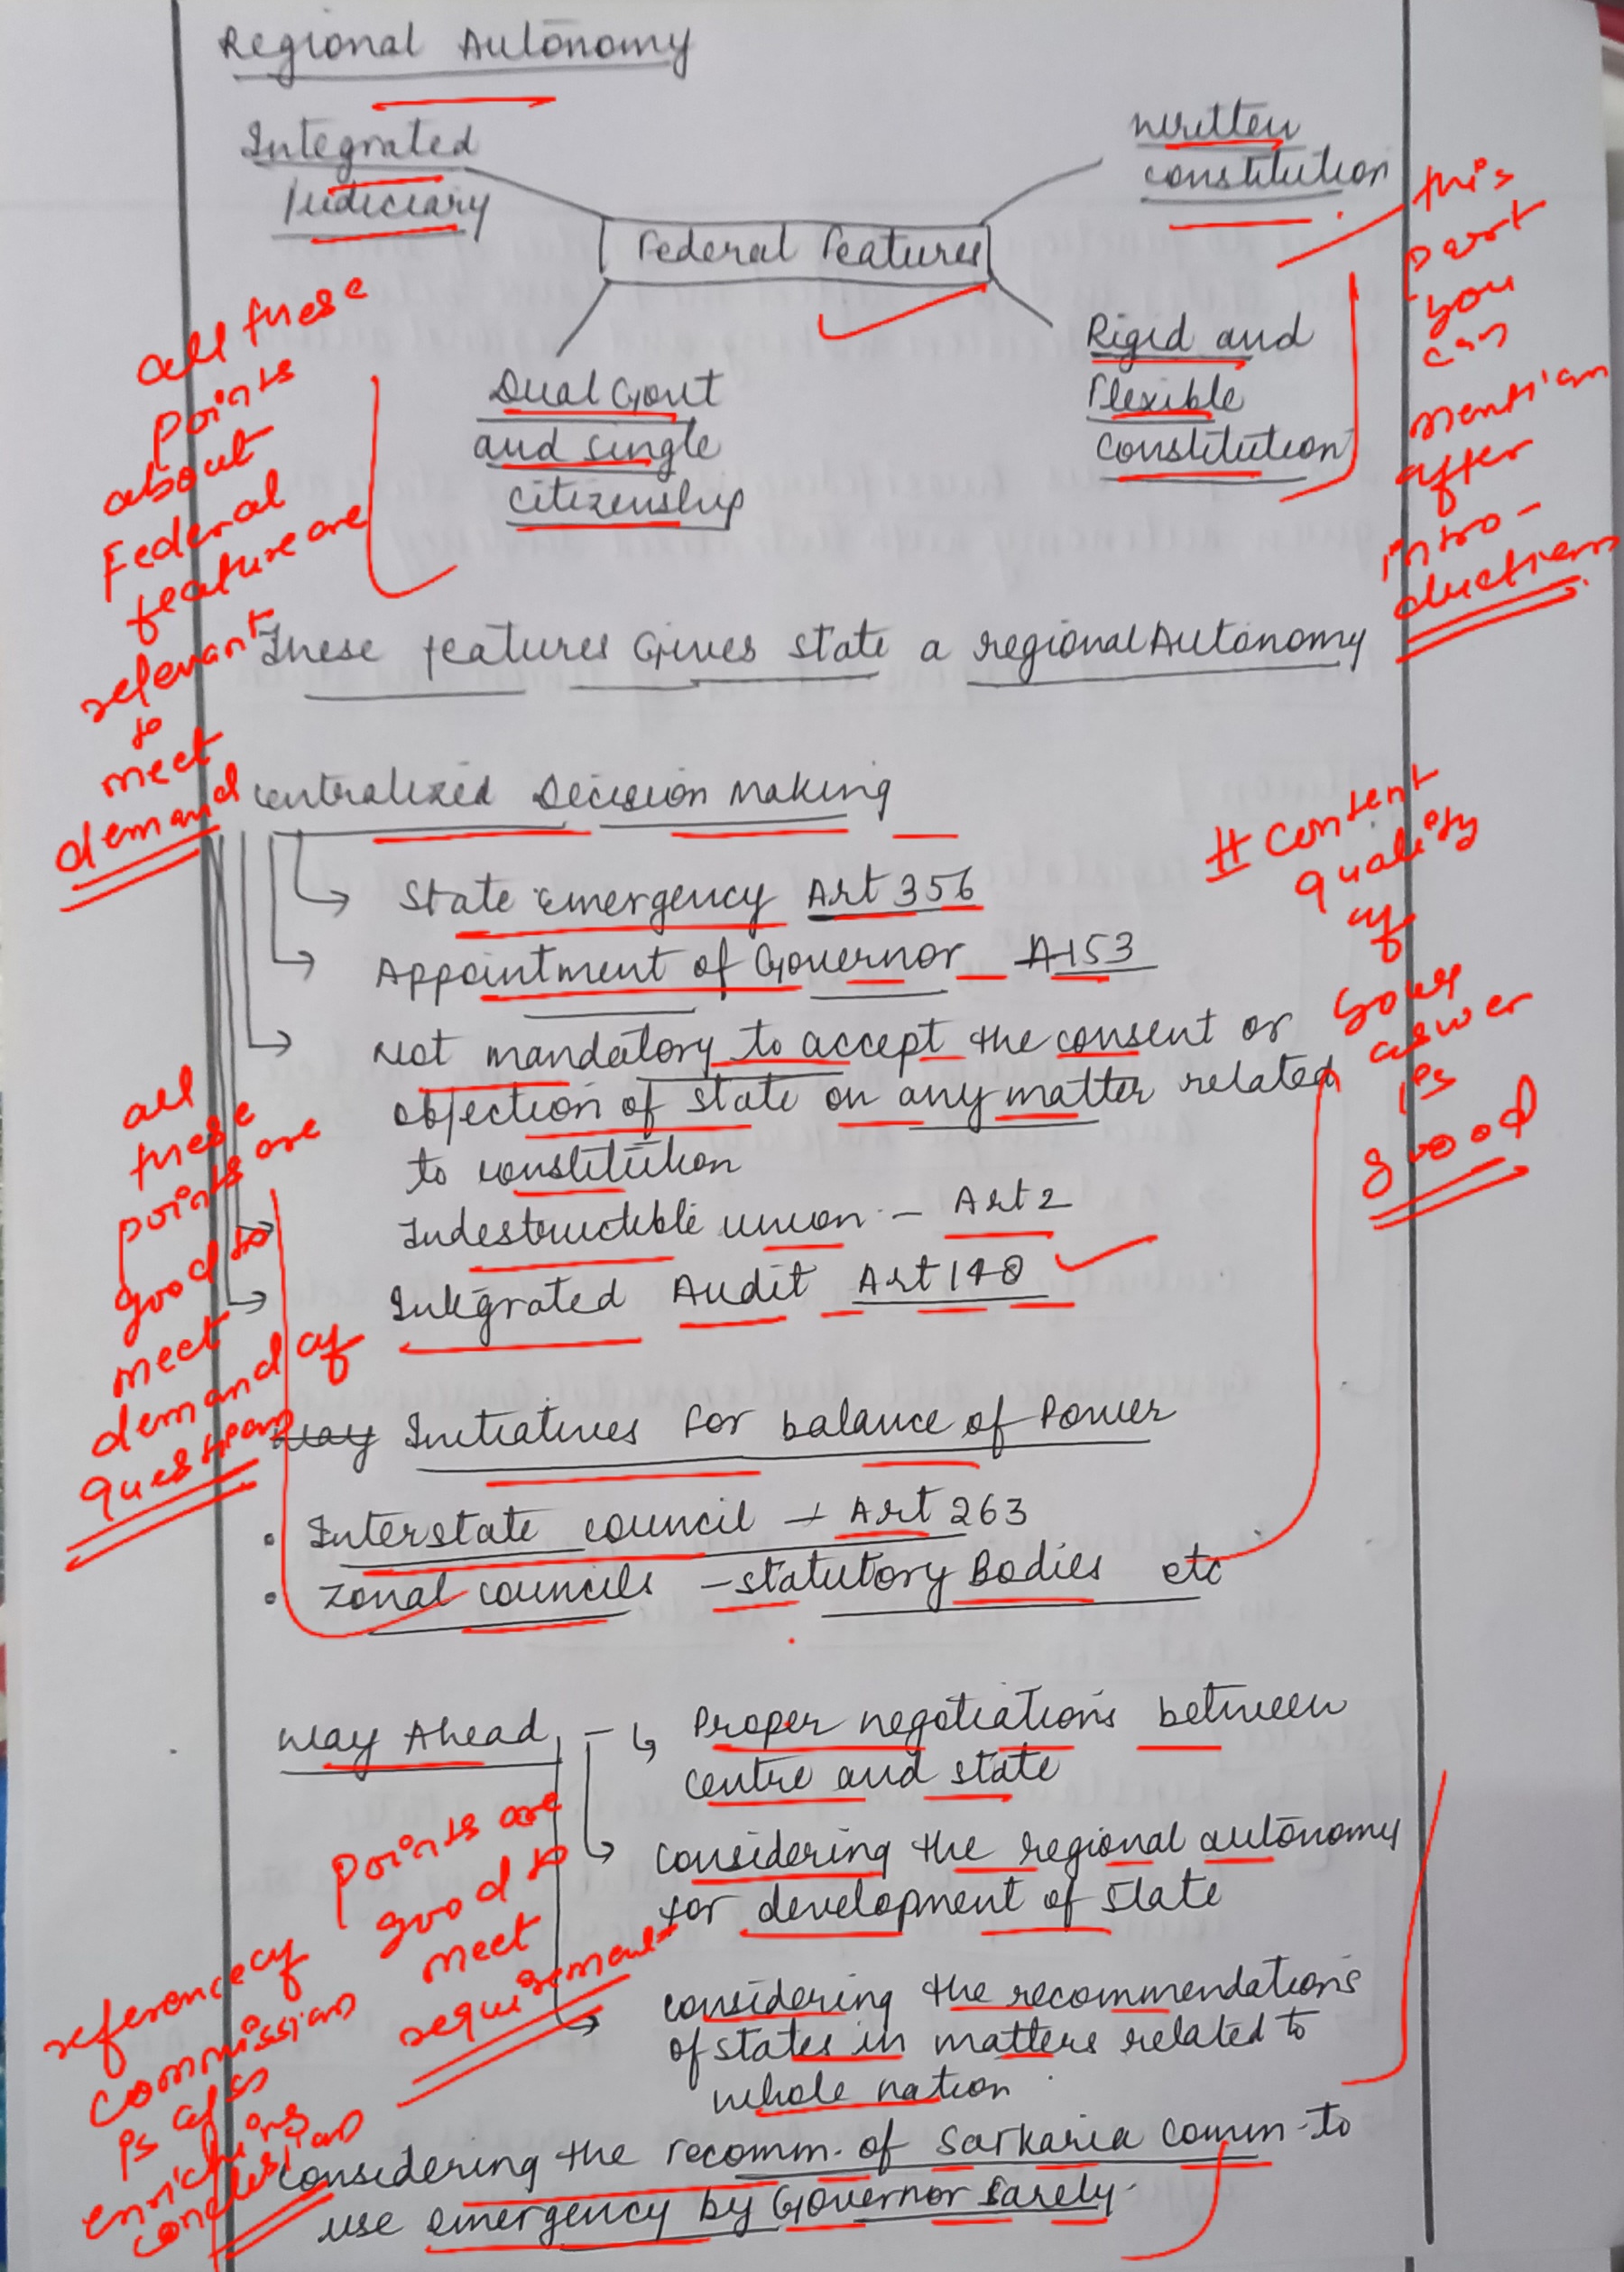 Regional Autonomy
Integrated
Judiciary
written
constitution
Federal Features
Dual Govt
and single
citizenship
Rigid and
Flexible
constitution
this
part
you
can
mention
after
intro-
duction
all these
points
about
Federal
feature are
relevant
to
meet
demand
These features Gives state a regional Autonomy
centralized Decision Making
State Emergency Art 356
Appointment of Governor A153
Not mandatory to accept the consent or
objection of state on any matter related
to constitution
Indestructible union - Art 2
Integrated Audit Art 148
# content
quality
of
your
aswer
is
good
all
these
points are
good to
meet
demand of
question
way Initiatives for balance of Power
• Interstate council → Art 263
• Zonal councils - statutory Bodies etc
Way Ahead - Proper negotiations between
centre and state
considering the regional autonomy
for development of state
considering the recommendations
of states in matters related to
whole nation
considering the recomm. of Sarkaria Comm- to
use emergency by Governor rarely.
points are
good to
meet
requirement
reference of
commission
is also
enriching
conclusion